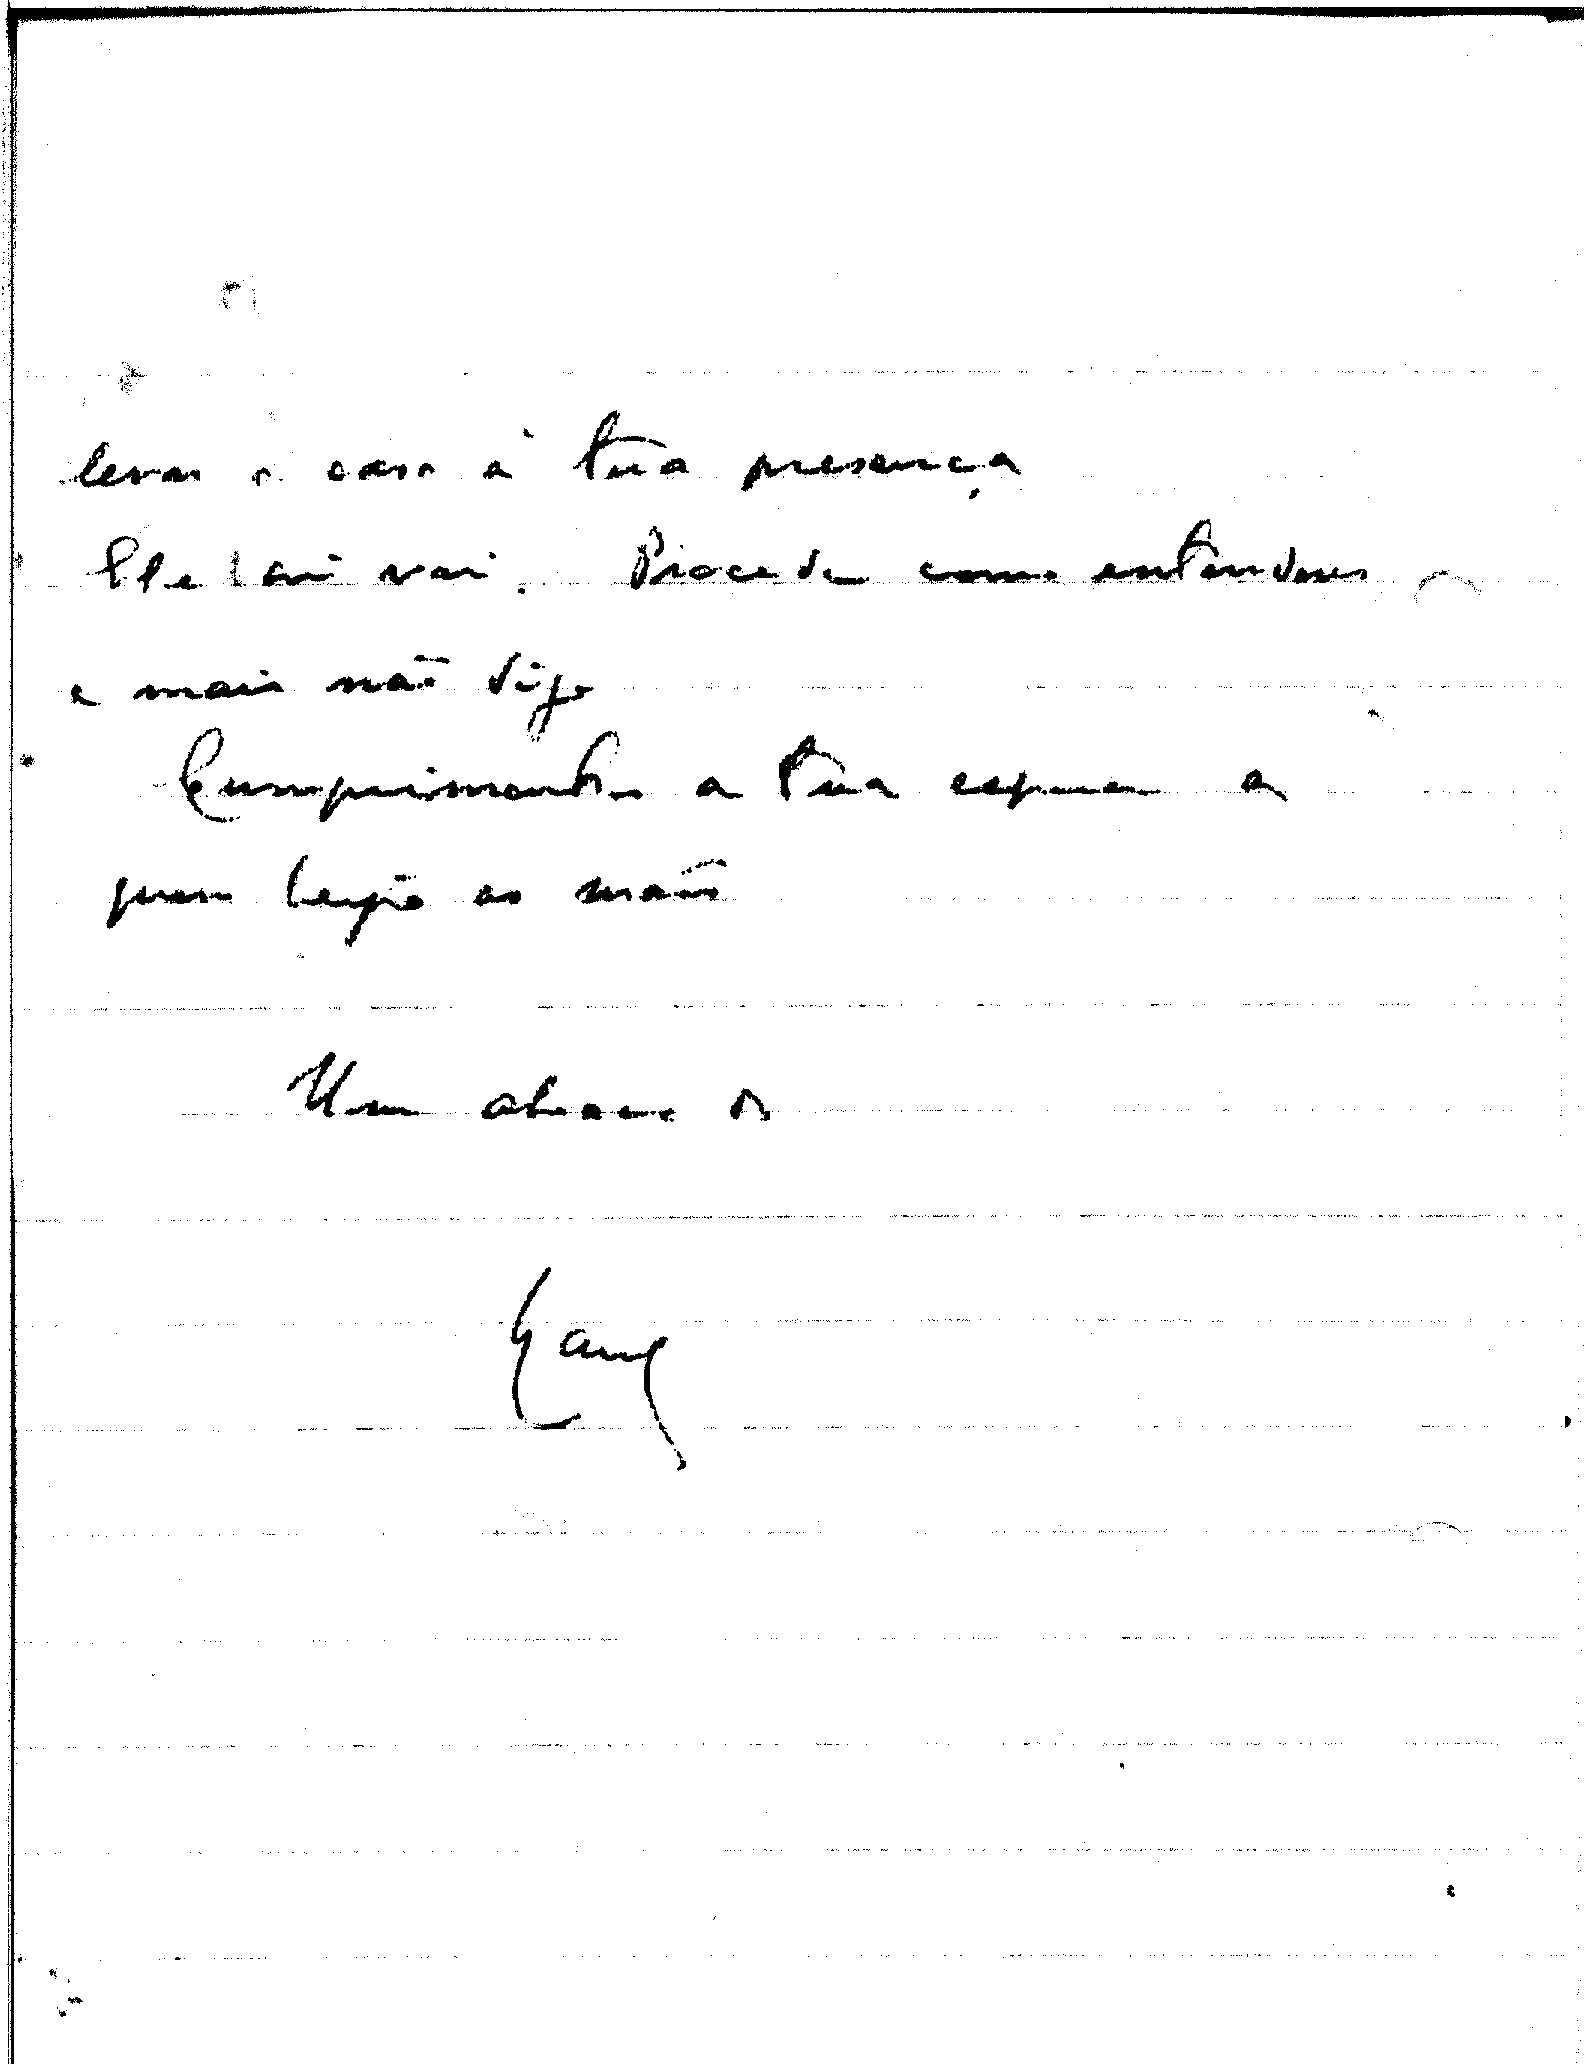 levar o caso à tua presença
Ele lá vai. Procede como entenderes
e mais não digo
Cumprimentos a tua esposa a
quem beijo as mãos
Um abraço do